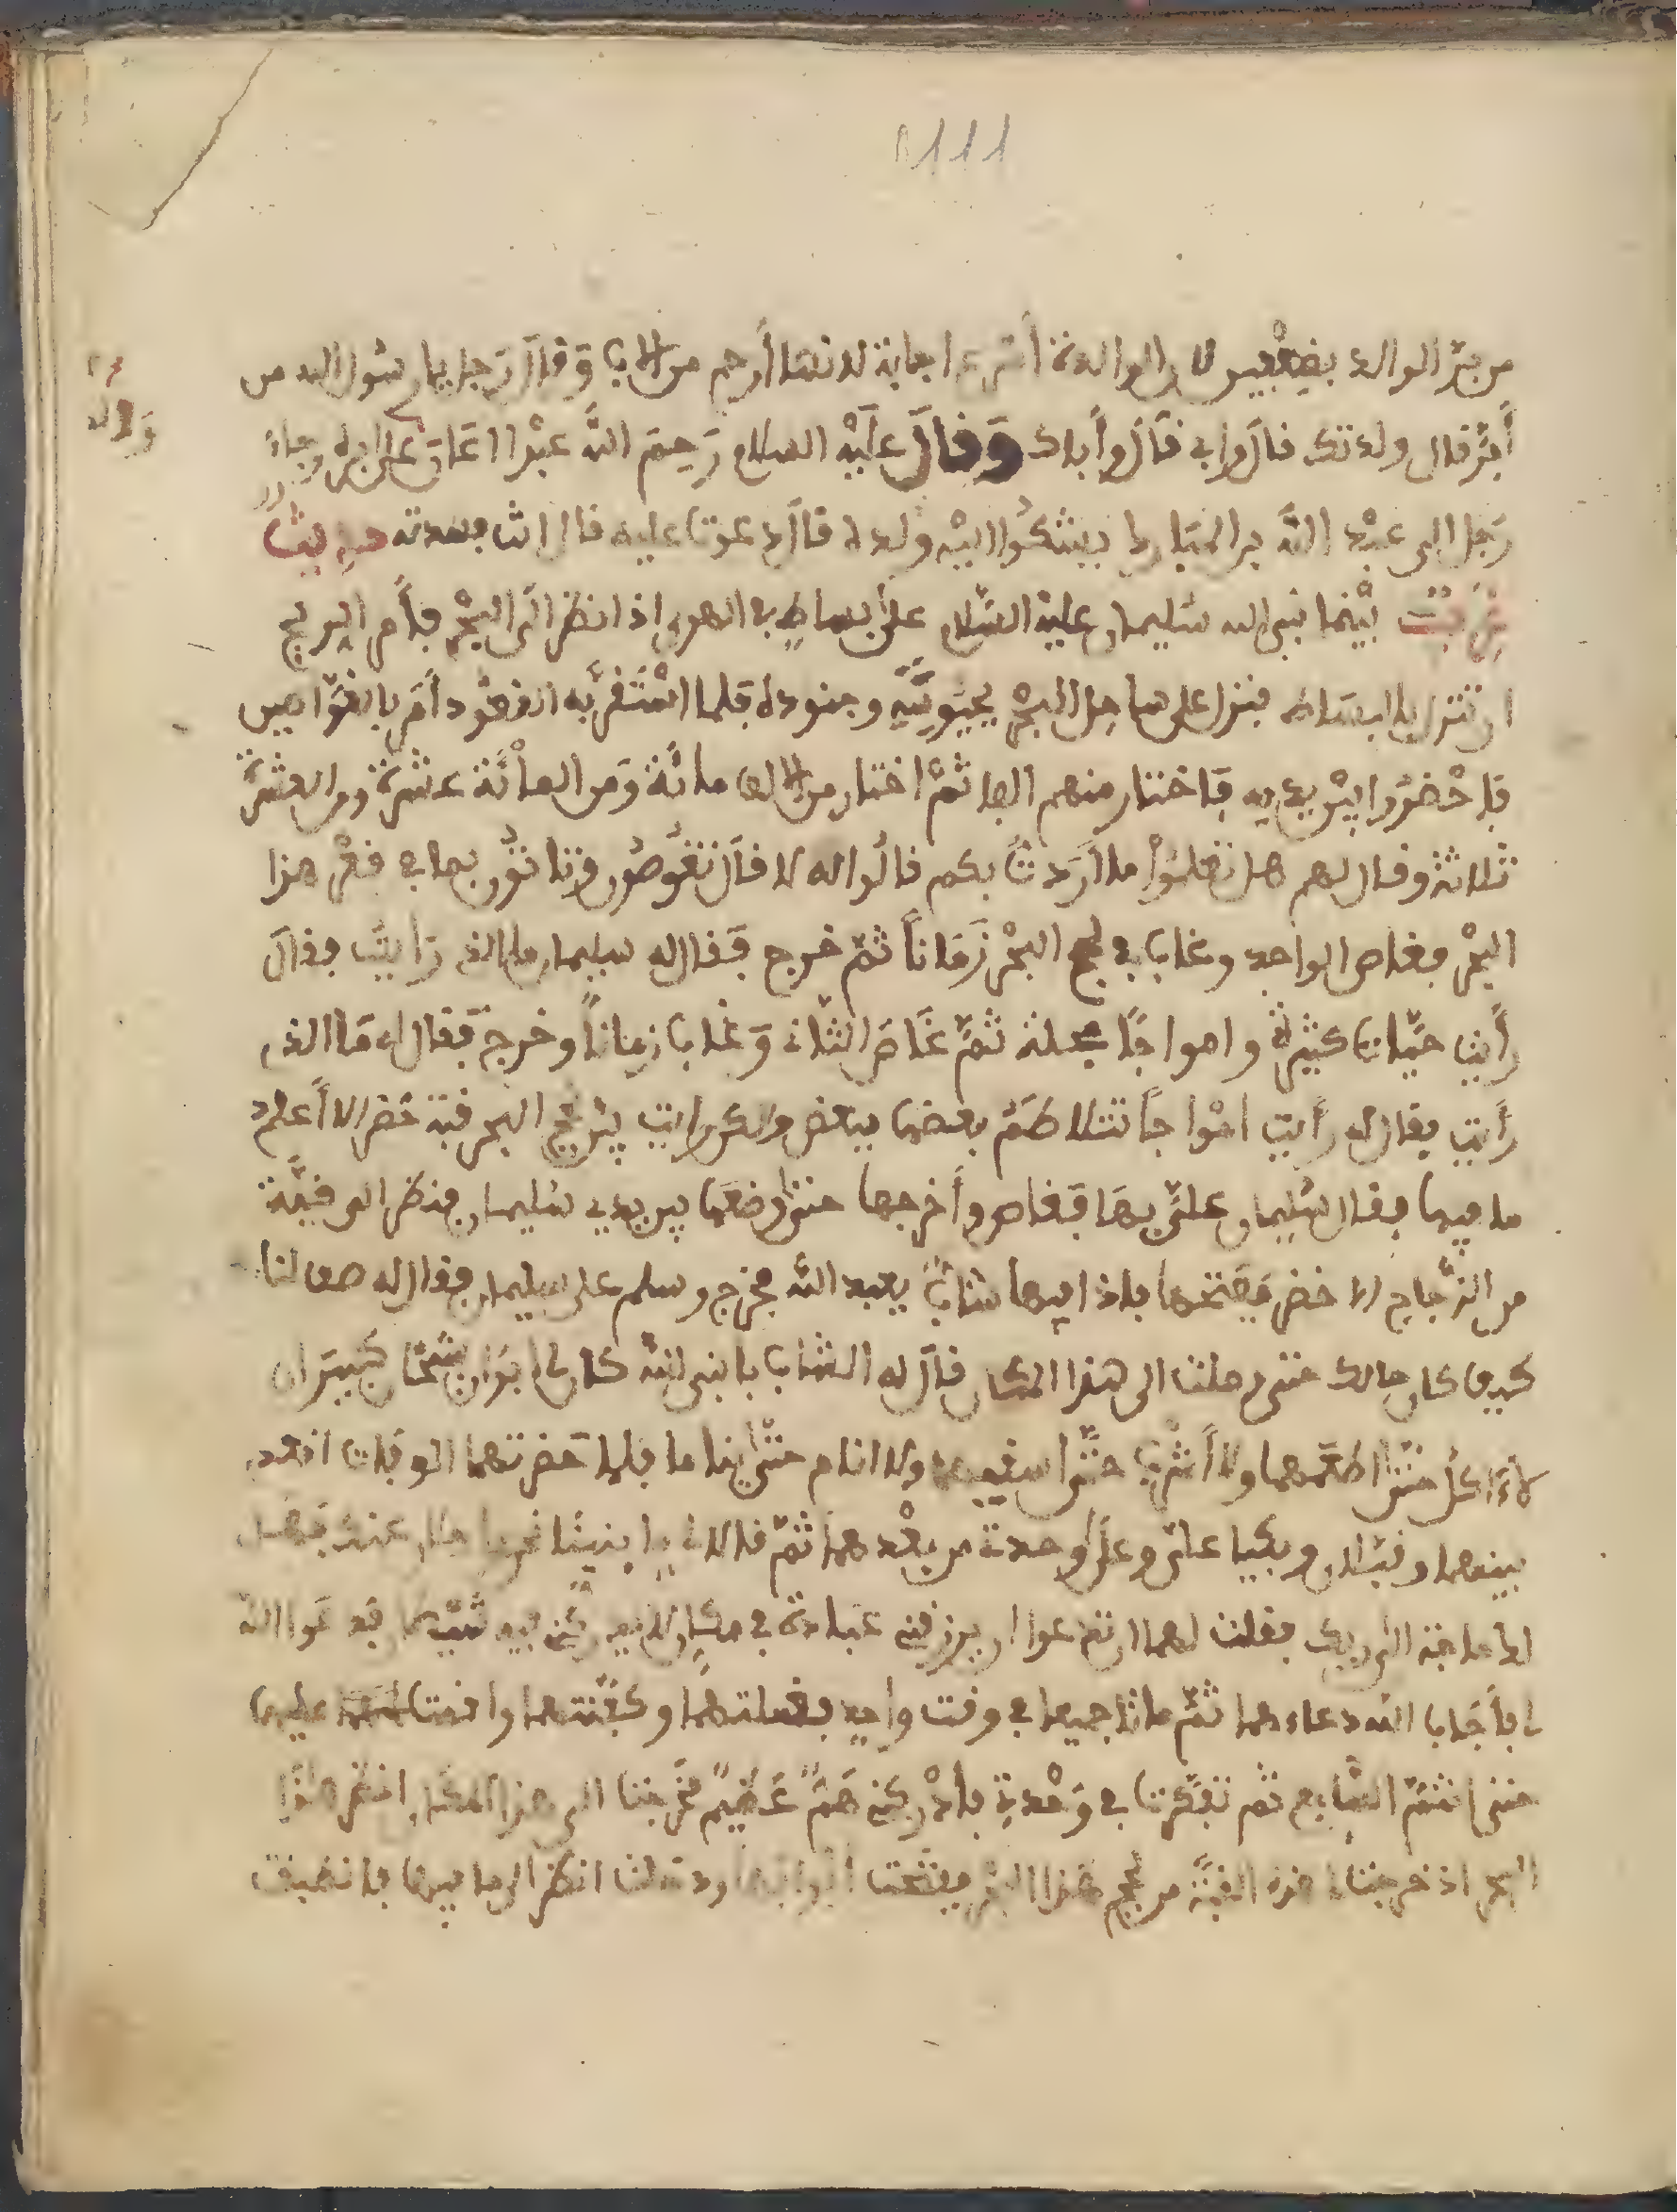 111
من برّ الوالد بضعفين لان الوالدة أسرع اجابة لانها أرحم من الاب وَقال رَجل يا رسُول الله من
أبرّ قال ولدتك قال وابي قال وأباك وَقالَ علَيْه السلام رَحِمَ اللَّه عبْدا اعَانَ على بره وجاء
رَجل الى عبْد اللَّه بن المبَارك يشكُوا اليْه ولده قال دعوتَ عليه قال انت افسدته حديث
غريب بيْنما نبي الله سُليمان عليْه السّلام علَى بساطٍ في الهوى اذ انظر الَى البحْر فأمر الريح
ان تنزل بالبسَاط فنزل على ساحل البحْر بحيُوشِهِ وجنوده فلما اسْتَقرَّ به القعُود أمَر بالغوَّاصين
فاحْضرُوا بيْن يديه فاختار منهم الفا ثمّ اختار من الالف مائة وَمن المائَة عشرة ومن العشرة
ثلاثة وقال لهم هل تعلمُوا ما أرَدتُ بكم قالُوا له لا قال تغُوصُون وتاتوُني بما في قعْر هذا
البحْر فغاص الواحد وغاب في لجج البحْر زَمَاناً ثمّ خرج فَقال له سليمان ما الذي رَايتَ فقال
رأيت حيّتان كثيرة وامواجًا ثمَّ غَاصَ الثّاني وَغاب زماناً وخرج فَقال له مَا الذي
رأيت فقال له رأيت امْواجاً تتلاطَمُ بعضها ببعض ولكن رايت بيْن لجج البحر قبة خضرا لا أعلم
ما فيها فقال سُليمان علَيّ بهَا فَغاص وأخرجها حتى وضعَها بين يدي سُليمان فنظر الى قبَّة
من الزُّجاج الاخضر فَفتحها فاذا فيها شابٌّ يعبد اللّه فخرج وسلم على سليمان فقال له صف لنا
كيف كان حالك حتى وصلت الى هذا المكان قال له الشاب يا نبي اللّه كان لي ابوَان شيخَان كبيرَان
لا آكل حتى اطعمهما ولا أشرب حتّى اسقيهما ولا انام حتّى يناما فلما حَضرتهما الوفات اقعد
بينهما وقبلاني وبكيا عليّ وعلَى وحدتي من بعْدهما ثمّ قالا لي يا بنينا عندك
الا حاجة الى ربك فقلت لهما ان تدعوا ان يرزقني عبادة في مكان فدعوا اللّه
لي فأجَاب اللّه دعاءهما ثمّ ماتا جميعا في وقت واحد فغسلتهُما وكفَّنتهما واقمت عليهما
حتى انتمّ السَّابع ثم تفكّرت في وَحْدتي فادْركني هَمٌّ عَظيمٌ فخَرجت الى هذا المكان انظر هذا
البحر اذ خرجت هذه القبَّة من لجج هذا البحر ففتحت ابوابها ودخلت انظر الى ما فيها فانطبقت